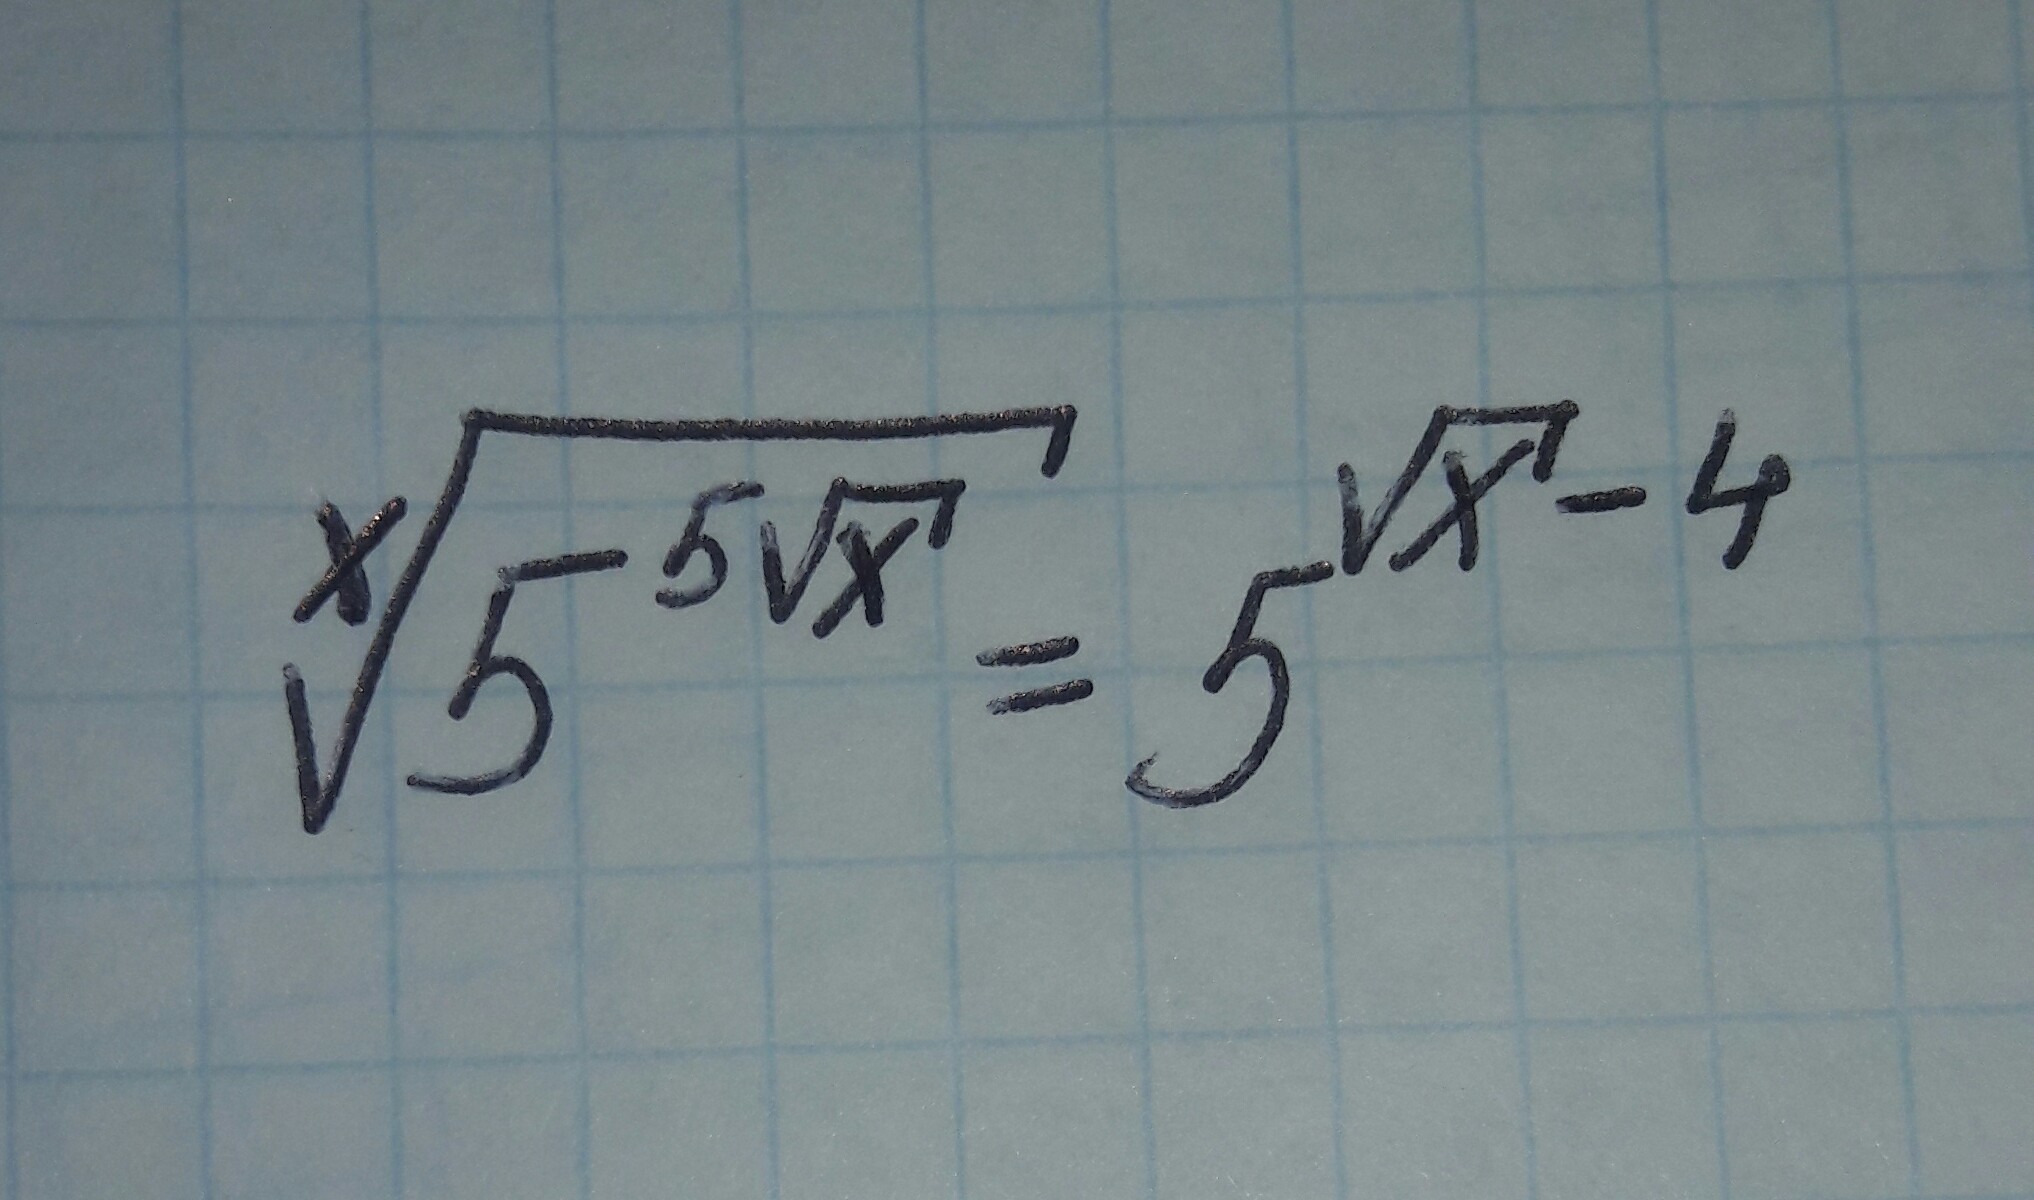 $\sqrt[x]{5^{5\sqrt{x}}} = 5^{\sqrt{x}-4}$